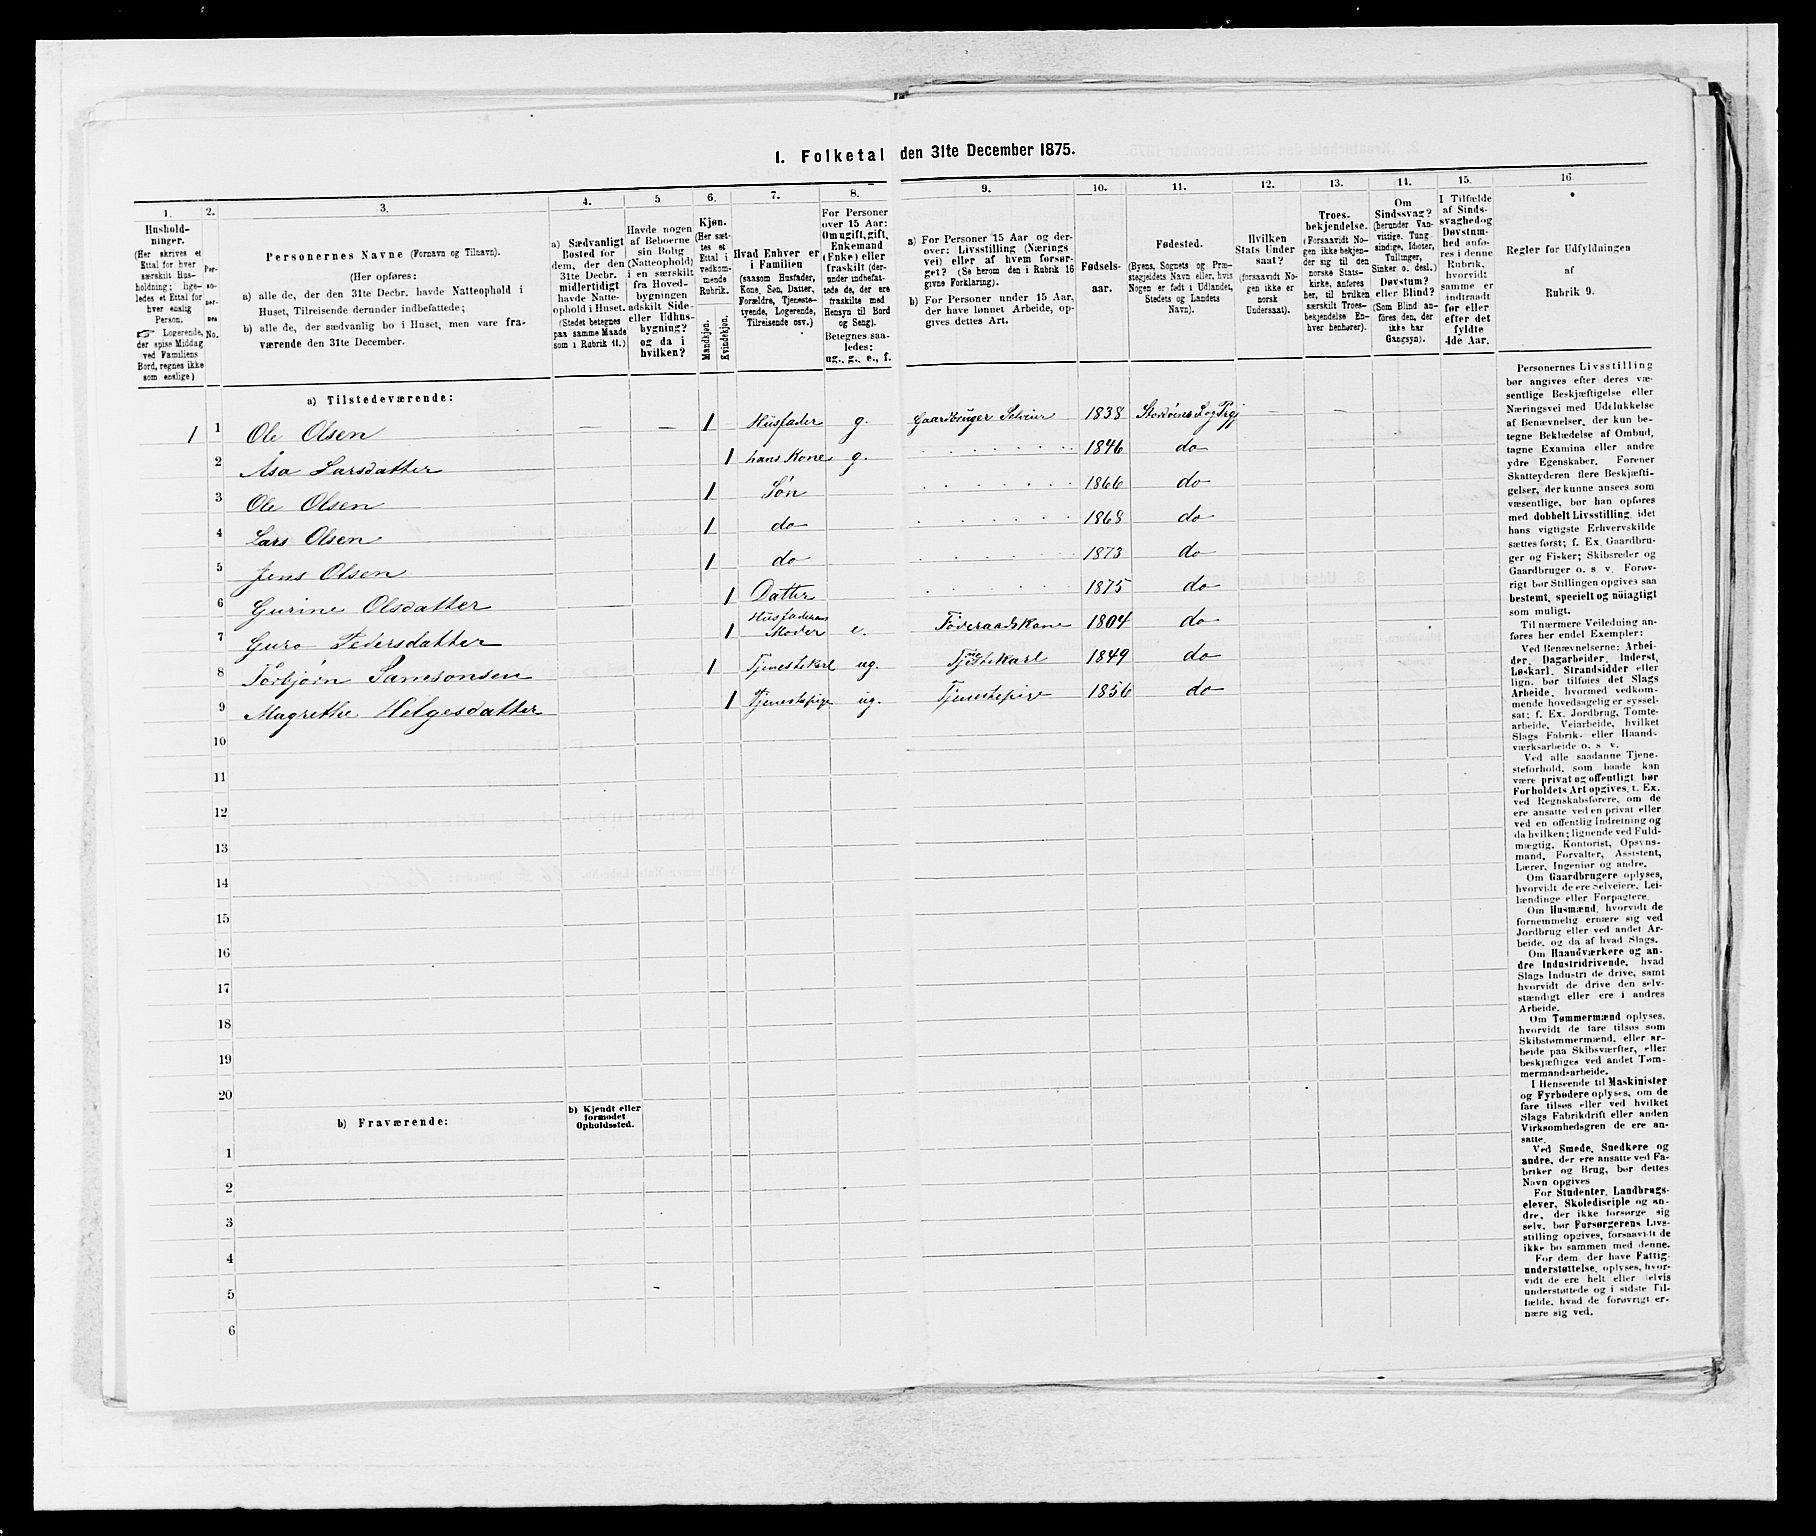 I. Folketal den 31te December 1875.
1. 2. 3. 4. 5 6. 7. 8. 9. 10. 11. 12. 13. 14. 15. 16
Hushold-
ninger.
(Her skrives et
Ettal for hver
særskilt Hus-
holdning; lige-
ledes et Ettal for
hver enslig
Person.
☞ Logerende,
der spise Middag
ved Familiens
Bord, regnes ikke
som enslige)
Per-
so-
ner-
nes
No.
Personernes Navne (Fornavn og Tilnavn).
(Her opføres:
a) alle de, der den 31te Decbr. havde Natteophold i
Huset, Tilreisende derunder indbefattede;
b) alle de, der sædvanlig bo i Huset, men vare fra-
værende den 31te December.
a) Sædvanligt
Bosted for
dem, der den
31te Decbr.
midlertidigt
havde Natte-
ophold i Huset.
(Stedet betegnes
paa samme Maade
som i Rubrik 11.)
Havde nogen
af Beboerne
sin Bolig
(Natteophold)
i en særskilt
fra Hoved-
bygningen
adskilt Side-
eller Udhus-
bygning?
og da i
hvilken?
Kjøn.
(Her sæt-
tes et
Ettal i
vedkom-
mende
Rubrik.
Mandkjøn.
Kvindekjøn.
Hvad Enhver er
i Familien
(saasom Husfader,
Kone, Søn, Datter,
Forældre, Tjeneste-
tyende, Logerende,
Tilreisende osv.)
For Personer
over 15 Aar:
Om ugift, gift,
Enkemand
(Enke) eller
fraskilt (der-
under indbefat-
tede de, der ere
fraskilte med
Hensyn til Bord
og Seng).
Betegnes saa-
ledes:
ug., g., e., f.
a) For Personer 15 Aar og der-
over: Livsstilling (Nærings
vei) eller af hvem forsør-
get? (Se herom den i Rubrik 16
givne Forklaring).
b) For Personer under 15 Aar,
der have lønnet Arbeide, op-
gives dettes Art.
Fødsels-
aar.
Fødested.
(Byens, Sognets og Præ-
stegjeldets Navn eller, hvis
Nogen er født i Udlandet,
Stedets og Landets
Navn).
Hvilken
Stats Under
saat?
(forsaavidt No-
gen ikke er
norsk
Undersaat).
Troes-
bekjendelse.
(Forsaavidt No-
gen ikke bekjen-
der sig til den
norske Stats-
kirke, anføres
her, til hvilken
særskilt Troes-
bekjendelse En-
hver henhører).
Om
Sindssvag?
(herunder Van-
vittige, Tung
sindige, Idioter,
Tullinger,
Sinker o. desl.)
Døvstum?
eller Blind?
(Som Blind an-
føres den, der
ikke har
Gangsyn).
I Tilfælde
af Sinds-
svaghed og
Døvstum-
hed anfø-
res i denne
Rubrik,
hvorvidt
samme er
indtraadt
før eller
efter det
fyldte
4de Aar.
Regler for Udfyldningen
af
Rubrik 9.
a) Tilstedeværende:
1 1 Ole Olsen — — 1 Husfader g. Gaardbruger Selveier 1838 Stordøens S og Prgj — —
2 Åsa Larsdatter 1 hans Kone g. 1846 do
3 Ole Olsen 1 Søn 1866 do
4 Lars Olsen 1 do 1868 do
5 Jens Olsen 1 do 1873 do
6 Gurine Olsdatter 1 Datter 1875 do
7 Guro Pedersdatter 1 Husfaderens Moder e. Føderaadskone 1804 do
8 Torbjørn Samsonsen 1 Tjenestekarl ug. Tjenestekarl 1849 do
9 Magrethe Helgesdatter 1 Tjenestepige ug. Tjenestepige 1856 do
10
11
12
13
14
15
16
17
18
19
20
b) Fraværende:
b) Kjendt eller
formodet
Opholdssted.
1
2
3
4
5
6
Personernes Livsstilling
bør angives efter deres væ-
sentlige Beskjæftigelse eller
Næringsvei med Udelukkelse
af Benævnelser, der kun be-
tegne Beklædelse af Ombud,
tagne Examina eller andre
ydre Egenskaber. Forener
Skatteyderen flere Beskjæfti-
gelser, der kunne ansees som
væsentlige, bør han opføres
med dobbelt Livsstilling, idet
hans vigtigste Erhvervskilde
sættes først; f. Ex. Gaardbru-
ger og Fisker; Skibsreder og
Gaardbruger o. s. v. Forøv-
rigt bør Stillingen opgives saa
bestemt, specielt og nöiagtigt
som muligt.
Til nærmere Veiledning an-
føres her endel Exempler:
Ved Benævnelserne: Arbei-
der, Dagarbeider, Inderst,
Løskarl, Strandsidder eller
lign. bør tilføies det Slags
Arbeide, hvormed vedkom-
mende hovedsagelig er syssel-
sat; f. Ex. Jordbrug, Tomte-
arbeide, Veiarbeide, hvilket
Slags Fabrik- eller Haand-
værksarbeide o. s. v.
Ved alle saadanne Tjene-
steforhold, som baade kan
være privat og offentligt, bør
Forholdets Art opgives, t. Ex.
ved Regnskabsførere, om de
ere ansatte ved en privat eller
ved en offentlig Indretning og
da hvilken; lignende ved Fuld-
mægtig, Kontorist, Opsyns-
mand, Forvalter, Assistent,
Lærer, Ingeniør og andre.
Om Gaardbrugere oplyses,
hvorvidt de ere Selveiere, Lei-
lændinge eller Forpagtere.
Om Husmænd, hvorvidt de
fornemmelig ernære sig ved
Jordbrug eller ved andet Ar-
beide, og da af hvad Slags.
Om Haandværkere og an-
dre Industridrivende, hvad
Slags Industri de drive, samt
hvorvidt de drive den selv-
stændigt eller ere i andres
Arbeide.
Om Tømmermænd oplyses,
hvorvidt de fare tilsøs som
Skibstømmermænd, eller ar-
beide paa Skibsværfter, eller
beskjæftiges ved andet Tøm-
mermandsarbeide.
I Henseende til Maskinister
og Fyrbødere oplyses, om de
fare tilsøs eller ved hvilket
Slags Fabrikdrift eller anden
Virksomhedsgren de ere an-
satte.
Ved Smede, Snedkere og
andre, der ere ansatte ved Fa-
briker og Brug, bør dettes
Navn opgives
For Studenter, Landbrugs-
elever, Skoledisciple og an-
dre, der ikke forsørge sig
selv, bør Forsørgerens Livs-
stilling opgives, forsaavidt de
ikke bo sammen med denne.
For dem, der have Fattig-
understøttelse, oplyses, hvor-
vidt de ere helt eller delvis
understøttede og i sidste Til-
fælde, hvad de forøvrigt er-
nære sig ved.